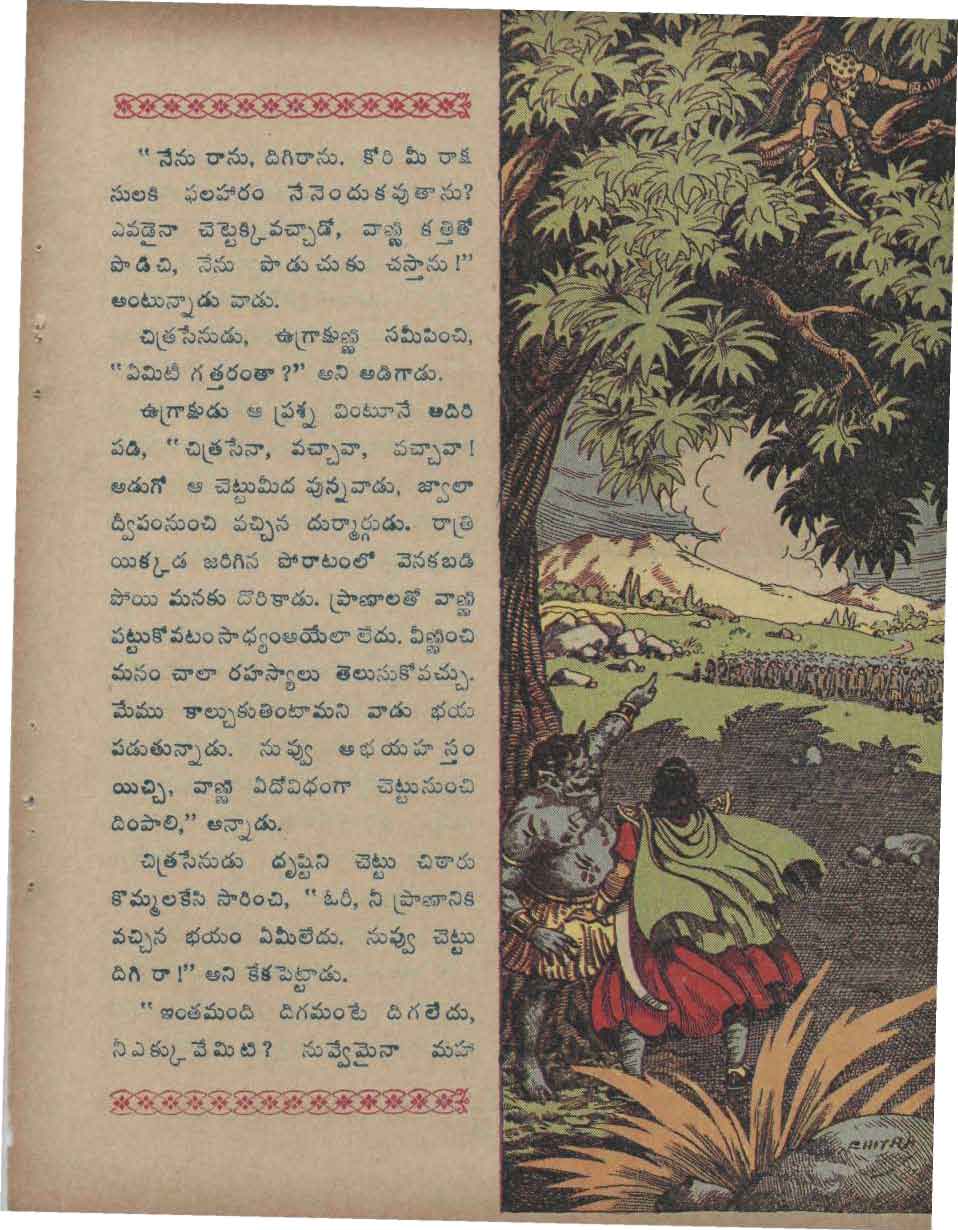 “ నేను రాను, దిగిరాను. కోరి మీ రాక్ష
సులకి ఫలహారం నేనెందుకవుతాను?
ఎవడైనా చెట్టెక్కివచ్చాడో, వాణ్ణి కత్తితో
పొడిచి, నేను పొడుచుకు చస్తాను!”
అంటున్నాడు వాడు.
చిత్రసేనుడు, ఉగ్రాక్షుణ్ణి సమీపించి,
“ఏమిటీ గత్తరంతా?” అని అడిగాడు.
ఉగ్రాక్షుడు ఆ ప్రశ్న వింటూనే అదిరి
పడి, “చిత్రసేనా, వచ్చావా, వచ్చావా!
అడుగో ఆ చెట్టుమీద వున్నవాడు, జ్వాలా
ద్వీపంనుంచి వచ్చిన దుర్మార్గుడు. రాత్రి
యిక్కడ జరిగిన పోరాటంలో వెనకబడి
పోయి మనకు దొరికాడు. ప్రాణాలతో వాణ్ణి
పట్టుకోవటం సాధ్యంఅయేలా లేదు. వీణ్ణించి
మనం చాలా రహస్యాలు తెలుసుకోవచ్చు.
మేము కాల్చుకుతింటామని వాడు భయ
పడుతున్నాడు. నువ్వు అభయహస్తం
యిచ్చి, వాణ్ణి ఏదోవిధంగా చెట్టునుంచి
దింపాలి,” అన్నాడు.
చిత్రసేనుడు దృష్టిని చెట్టు చిఠారు
కొమ్మలకేసి సారించి, “ ఓరీ, నీ ప్రాణానికి
వచ్చిన భయం ఏమీలేదు. నువ్వు చెట్టు
దిగి రా!” అని కేకపెట్టాడు.
“ ఇంతమంది దిగమంటే దిగలేదు,
నీఎక్కువేమిటి? నువ్వేమైనా మహా
CHITRA